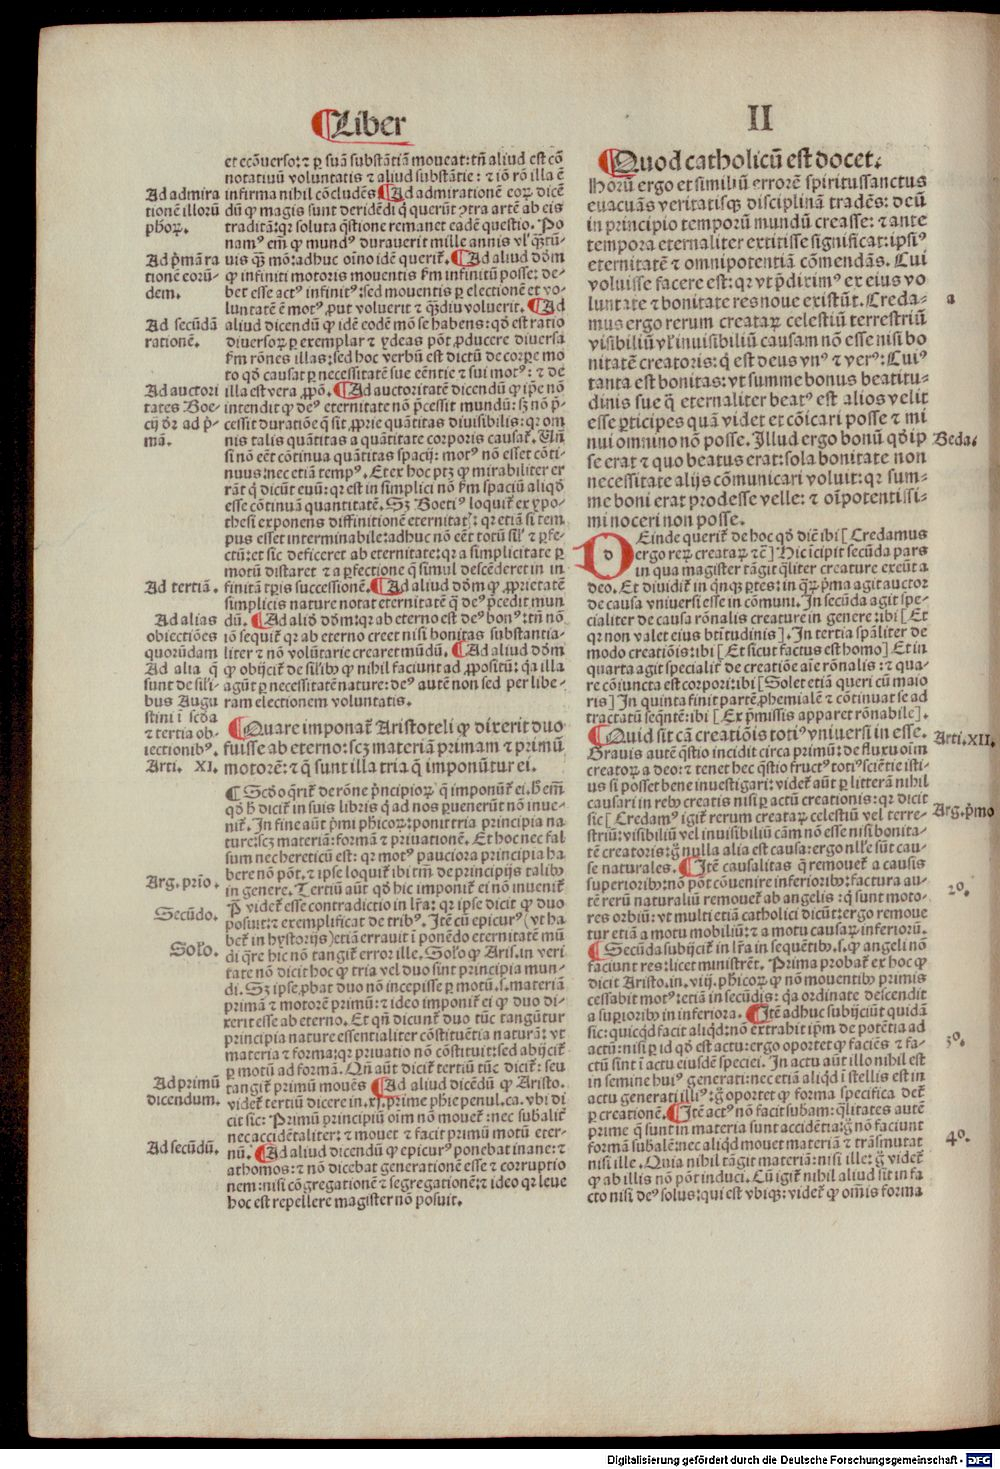 ¶Liber
II
et ecõverso: ⁊ ꝑ suã substãtiã moueat: tñ aliud est cõ
notatiuũ voluntatis ⁊ aliud substãtie: ⁊ iõ rõ illa ẽ
infirma nihil cõcludẽs ¶Ad admirationẽ eoꝝ dicẽ
dũ ꝙ magis sunt deridẽdi q̃ querũt ↄtra artẽ ab eis
traditã: qꝛ soluta q̃stione remanet eadẽ questio. Po
namꝰ em̃ ꝙ mundꝰ durauerit mille annis vl' q̃ztũ-
uis q̃ʒ mõ: adhuc oĩno idẽ querit᷑. ¶Ad aliud dõm
ꝙ infiniti motoris mouentis ẜm infinitũ posse: de-
bet esse actꝰ infinitꝰ: sed mouentis ꝑ electionẽ et vo-
luntatẽ ẽ motꝰ ꝓut voluerit ⁊ q̃ʒdiu voluerit. ¶Ad
aliud dicendũ ꝙ idẽ eodẽ mõ se habens: qð est ratio
diuersoꝝ ꝑ exemplar ⁊ ydeas põt ꝓducere diuersa
ẜm rõnes illas: sed hoc verbũ est dictũ de corꝑe mo
to qð causat ꝑ necessitatẽ sue eẽntie ⁊ sui motꝰ: ⁊ de
illa est vera ꝓpõ. ¶Ad auctoritatẽ dicendũ ꝙ ip̃e nõ
intendit ꝙ deꝰ eternitate nõ p̃cessit mundũ: sʒ nõ p̃-
cessit duratiõe q̃ sit ꝓprie quãtitas diuisibilis: qꝛ om
nis talis quãtitas a quãtitate corporis causat᷑. Vñ
si nõ eẽt cõtinua quãtitas spacij: motꝰ nõ esset cõti-
nuus: nec etiã tempꝰ. Et ex hoc ptʒ ꝙ mirabiliter er
rãt q̃ dicũt euũ: qꝛ est in simplici nõ ẜm spaciũ aliqð
esse cõtinuã quantitatẽ. Sʒ Boetiꝰ loquit᷑ ex ypo-
thesi exponens diffinitionẽ eternitatꝭ: qꝛ etiã si tem
pus esset interminabile: adhuc nõ eẽt totũ sil' ⁊ ꝑfe-
ctũ: et sic deficeret ab eternitate: qꝛ a simplicitate ꝑ
motũ distaret ⁊ a ꝑfectione q̃ simul descẽderet in in
finitã tꝑis successionẽ. ¶Ad aliud dõm ꝙ ꝓprietatẽ
simplicis nature notat eternitatẽ q̃ deꝰ p̃cedit mun
dũ. ¶Ad aliõ dõm: qꝛ ab eterno est deꝰ bonꝰ: tñ nõ
iõ sequit᷑ qꝛ ab eterno creet nisi bonitas substantia-
liter ⁊ nõ volũtarie crearet mũdũ. ¶Ad aliud dõm
ꝙ obijcit᷑ de silibꝰ ꝙ nihil faciunt ad ꝓpositũ: q̃a illa
agũt ꝑ necessitatẽ nature: deꝰ autẽ non sed per libe-
ram electionem voluntatis.
¶Quare imponat᷑ Aristoteli ꝙ dixerit duo
fuisse ab eterno: scʒ materiã primam ⁊ primũ
motorẽ: ⁊ q̃ sunt illa tria q̃ imponũtur ei.
¶ Scðo q̃rit᷑ de rõne p̃ncipioꝝ q̃ imponũt᷑ ei. Hẽ em̃
qð h̃ dicit᷑ in suis libris q̃ ad nos ꝑuenerũt nõ inue-
nit᷑. In fine aũt p̃mi ph̃icoꝝ: ponit tria principia na
ture: scʒ materiã: formã ⁊ priuationẽ. Et hoc nec fal
sum nec hereticũ est: qꝛ motꝰ pauciora principia ha
bere nõ põt. ⁊ ipse loquit᷑ ibi tm̃ de principijs talibꝰ
in genere. Tertiũ aũt qð hic imponit᷑ ei nõ inuenit᷑
P̃ videt᷑ esse contradictio in lr̃a: qꝛ ipse dicit ꝙ duo
posuit: ⁊ exemplificat de tribꝰ. Itẽ cũ epicurꝰ (vt ha
bet᷑ in hystorijs) etiã errauit ĩ ponẽdo eternitatẽ mũ
di q̃re hic nõ tangit᷑ error ille. Solo ꝙ Aris. in veri
tate nõ dicit hoc ꝙ tria vel duo sint principia mun-
di. Sʒ ipse ꝓbat duo nõ incepisse ꝑ motũ. s. materiã
primã ⁊ motorẽ primũ: ⁊ ideo imponit᷑ ei ꝙ duo di-
xerit esse ab eterno. Et qñ dicunt᷑ duo tũc tangũtur
principia nature essentialiter cõstituẽtia naturã: vt
materia ⁊ forma: qꝛ priuatio nõ cõstituit: sed abijcit᷑
ꝑ motũ ad formã. Qñ aũt dicit᷑ tertiũ tũc dicit᷑: seu
tangit᷑ primũ mouẽs ¶Ad aliud dicẽdũ ꝙ Aristo.
videt᷑ tertiũ dicere in. xj. prime ph̃ie penul. ca. vbi di
cit sic: Primũ principiũ oĩm nõ mouet᷑: nec subalit᷑
nec accidẽtaliter: ⁊ mouet ⁊ facit primũ motũ eter-
nũ. ¶Ad aliud dicendũ ꝙ epicurꝰ ponebat inane: ⁊
athomos: ⁊ nõ dicebat generationẽ esse ⁊ corruptio
nem: nisi cõgregationẽ ⁊ segregationẽ: ⁊ ideo qꝛ leue
hoc est repellere magister nõ posuit.
Ad admira
tionẽ illorũ
ph̃oꝝ.
Ad p̃mã ra
tionẽ eorũ-
dem.
Ad secũdã
rationẽ.
Ad auctori
tates Boe-
cij ðr ad p̃-
mã.
Ad tertiã.
Ad alias
obiectiões
quorũdam
Ad alia q̃
sunt de sili-
bus Augu
stini ĩ scða
⁊ tertia ob-
iectionibꝰ.
Arti. XI.
Arg. prĩo.
Secũdo.
Solo.
Ad primũ
dicendum.
Ad secũdũ.
¶Quod catholicũ est docet.
Horũ ergo et similiũ errorẽ spiritussanctus
euacuãs veritatisqꝫ disciplinã tradẽs: deũ
in principio temporũ mundũ creasse: ⁊ ante
tempora eternaliter extitisse significat: ipsiꝰ
eternitatẽ ⁊ omnipotentiã cõmendãs. Cui
voluisse facere est: qꝛ vt p̃dixim᷒ ex eius vo
luntate ⁊ bonitate res noue existũt. Creda-
mus ergo rerum creataꝝ celestiũ terrestriũ
visibiliũ vl' inuisibiliũ causam nõ esse nisi bo
nitatẽ creatoris: q̃ est deus vnꝰ ⁊ verꝰ: Cuiꝰ
tanta est bonitas: vt summe bonus beatitu-
dinis sue q̃ eternaliter beatꝰ est alios velit
esse ꝑticipes quã videt et cõicari posse ⁊ mi
nui omnino nõ posse. Illud ergo bonũ qð ip
se erat ⁊ quo beatus erat: sola bonitate non
necessitate alijs cõmunicari voluit: qꝛ sum-
me boni erat prodesse velle: ⁊ oĩpotentissi-
mi noceri non posse.
DEinde querit᷑ de hoc qð diẽ ibi [Credamus
ergo reꝝ creataꝝ ⁊c̃] Hic ĩcipit secũda pars
in qua magister tãgit q̃liter creature exeũt a
deo. Et diuidit᷑ in q̃nqꝫ ꝑtes: in q̃ꝝ p̃ma agit auctor
de causa vniuersi esse in cõmuni. In secũda agit spe-
cialiter de causa rõnalis creature in genere: ibi [Et
qꝛ non valet eius bt̃itudinis]. In tertia sp̃aliter de
modo creatiõis: ibi [Et sicut factus est homo] Et in
quarta agit specialit᷑ de creatiõe aĩe rõnalis: ⁊ qua-
re cõiuncta est corpori: ibi [Solet etiã queri cũ maio
ris] In quinta finit partẽ ꝓhemialẽ ⁊ cõtinuat se ad
tractatũ seq̃ntẽ: ibi [Ex p̃missis apparet rõnabile].
¶Quid sit cã creatiõis totiꝰ vniuersi in esse.
Grauis autẽ q̃stio incidit circa primũ: de fluxu oĩm
creatoꝝ a deo: ⁊ tenet hec q̃stio fructꝰ totiꝰ sciẽtie isti-
us si posset bene inuestigari: videt᷑ aũt ꝑ litterã nihil
causari in rebꝰ creatis nisi ꝑ actũ creationis: qꝛ dicit
sic [Credamꝰ igit᷑ rerum creataꝝ celestiũ vel terre-
striũ: visibiliũ vel inuisibiliũ cãm nõ esse nisi bonita-
tẽ creatoris: g̃ nulla alia est causa: ergo nll'e sũt cau-
se naturales. ¶Itẽ causalitas q̃ remouet᷑ a causis
superioribꝰ: nõ põt cõuenire inferioribꝰ: factura au-
tẽ rerũ naturaliũ remouet᷑ ab angelis: q̃ sunt moto-
res orbiũ: vt multi etiã catholici dicũt: ergo remoue
tur etiã a motu mobiliũ: ⁊ a motu causaꝝ inferiorũ.
¶Secũda subijcit᷑ in lr̃a in sequẽtibꝰ. s. ꝙ angeli nõ
faciunt res: licet ministrẽt. Prima probat᷑ ex hoc ꝙ
dicit Aristo. in. viij. ph̃icoꝝ ꝙ nõ mouentibꝰ primis
cessabit motꝰ: etiã in secũdis: q̃a ordinate descendit
a supioribꝰ in inferiora. ¶Itẽ adhuc subijciũt quidã
sic: quicqͥd facit aliqͥd: nõ extrahit ip̃m de potẽtia ad
actũ: nisi ꝑ id qð est actu: ergo oportet ꝙ faciẽs ⁊ fa-
ctũ sint ĩ actu eiusdẽ speciei. In actu aũt illo nihil est
in semine huiꝰ generati: nec etiã aliqͥd ĩ stellis est in
actu generati illiꝰ: g̃ oportet ꝙ forma specifica det᷑
ꝑ creationẽ. ¶Itẽ actꝰ nõ facit subam: q̃litates autẽ
prime q̃ sunt in materia sunt accidẽtia: g̃ nõ faciunt
formã subalẽ: nec aliqͥd mouet materiã ⁊ trãsmutat
nisi ille. Quia nihil tãgit materiã: nisi ille: g̃ videt᷑
ꝙ ab illis nõ põt induci. Cũ igit᷑ nihil aliud sit in fa
cto nisi deꝰ solus: qui est vbiqꝫ: videt᷑ ꝙ om̃is forma
a
Beda.
Arti. XII.
Arg. p̃mo
2º.
3º.
4º.
Digitalisierung gefördert durch die Deutsche Forschungsgemeinschaft - DFG